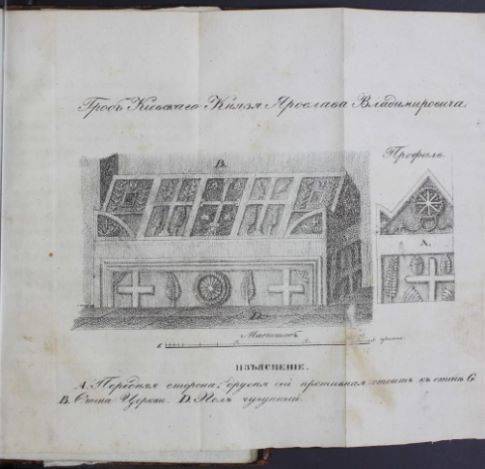 Гробъ Кіевскаго Князя Ярослава Владимировича.
Профиль.
B.
A.
D.
Масштабъ
ИЗЪЯСНЕНІЕ.
A. Передняя сторона, другая ей противная стоитъ къ стѣнѣ
B. Стѣна Церкви. D. Полъ чугунный.